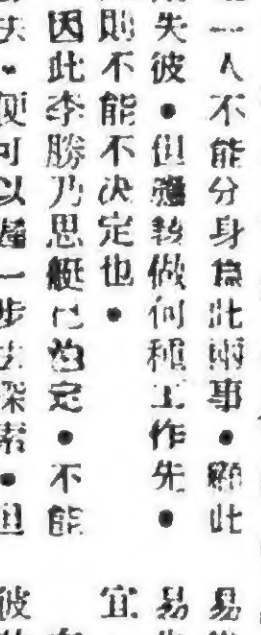 一人不能分身爲此兩事●顧此
失彼●但應該做何種工作先●
則不能不決定也●
因此李勝乃思艇已泊定●不能
便可以進一步去探索●但
易
易
宜
彼